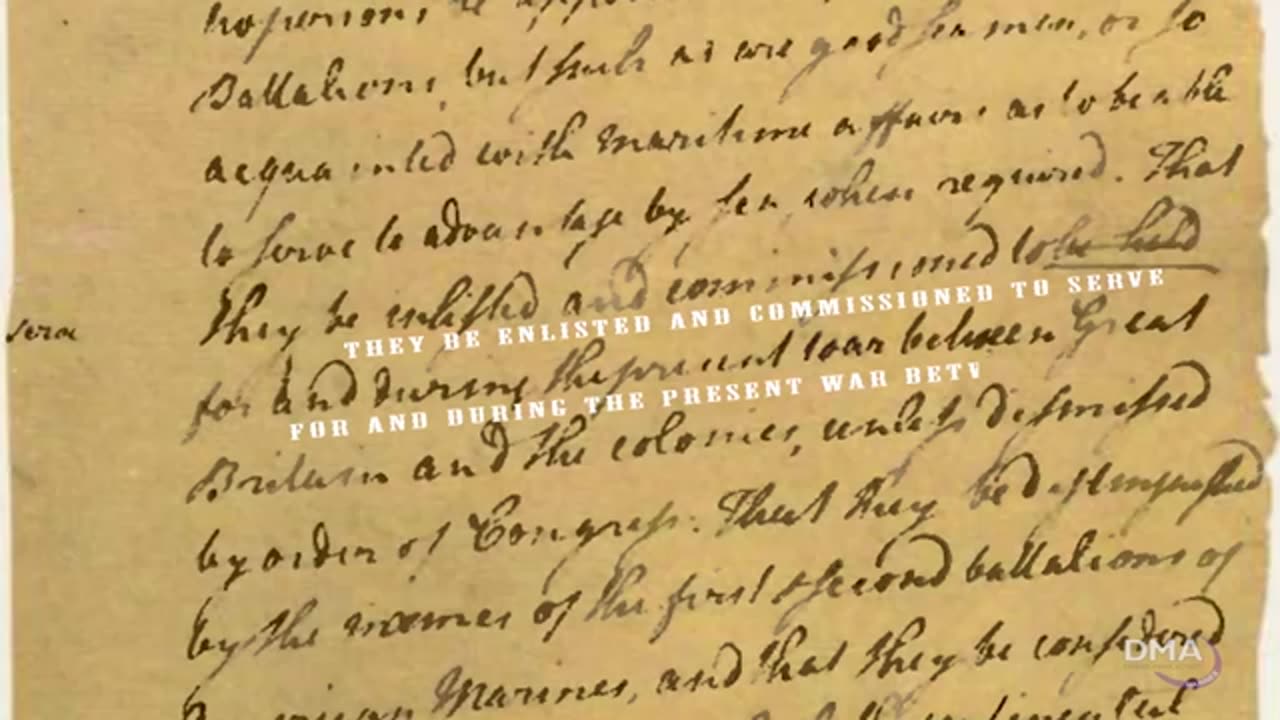 no persons be
Battalions, but such as are good seamen, or so
acquainted with maritime affairs as to be able
to serve to advantage by sea, when required. That
they be inlisted and commissioned to be held
THEY BE ENLISTED AND COMMISSIONED TO SERVE
serve
for and during the present war between Great
FOR AND DURING THE PRESENT WAR BETW
Britain and the colonies, unless dismissed
by order of Congress. That they be distinguished
by the names of the first & second battalions of
American Marines, and that they be considered
DMA